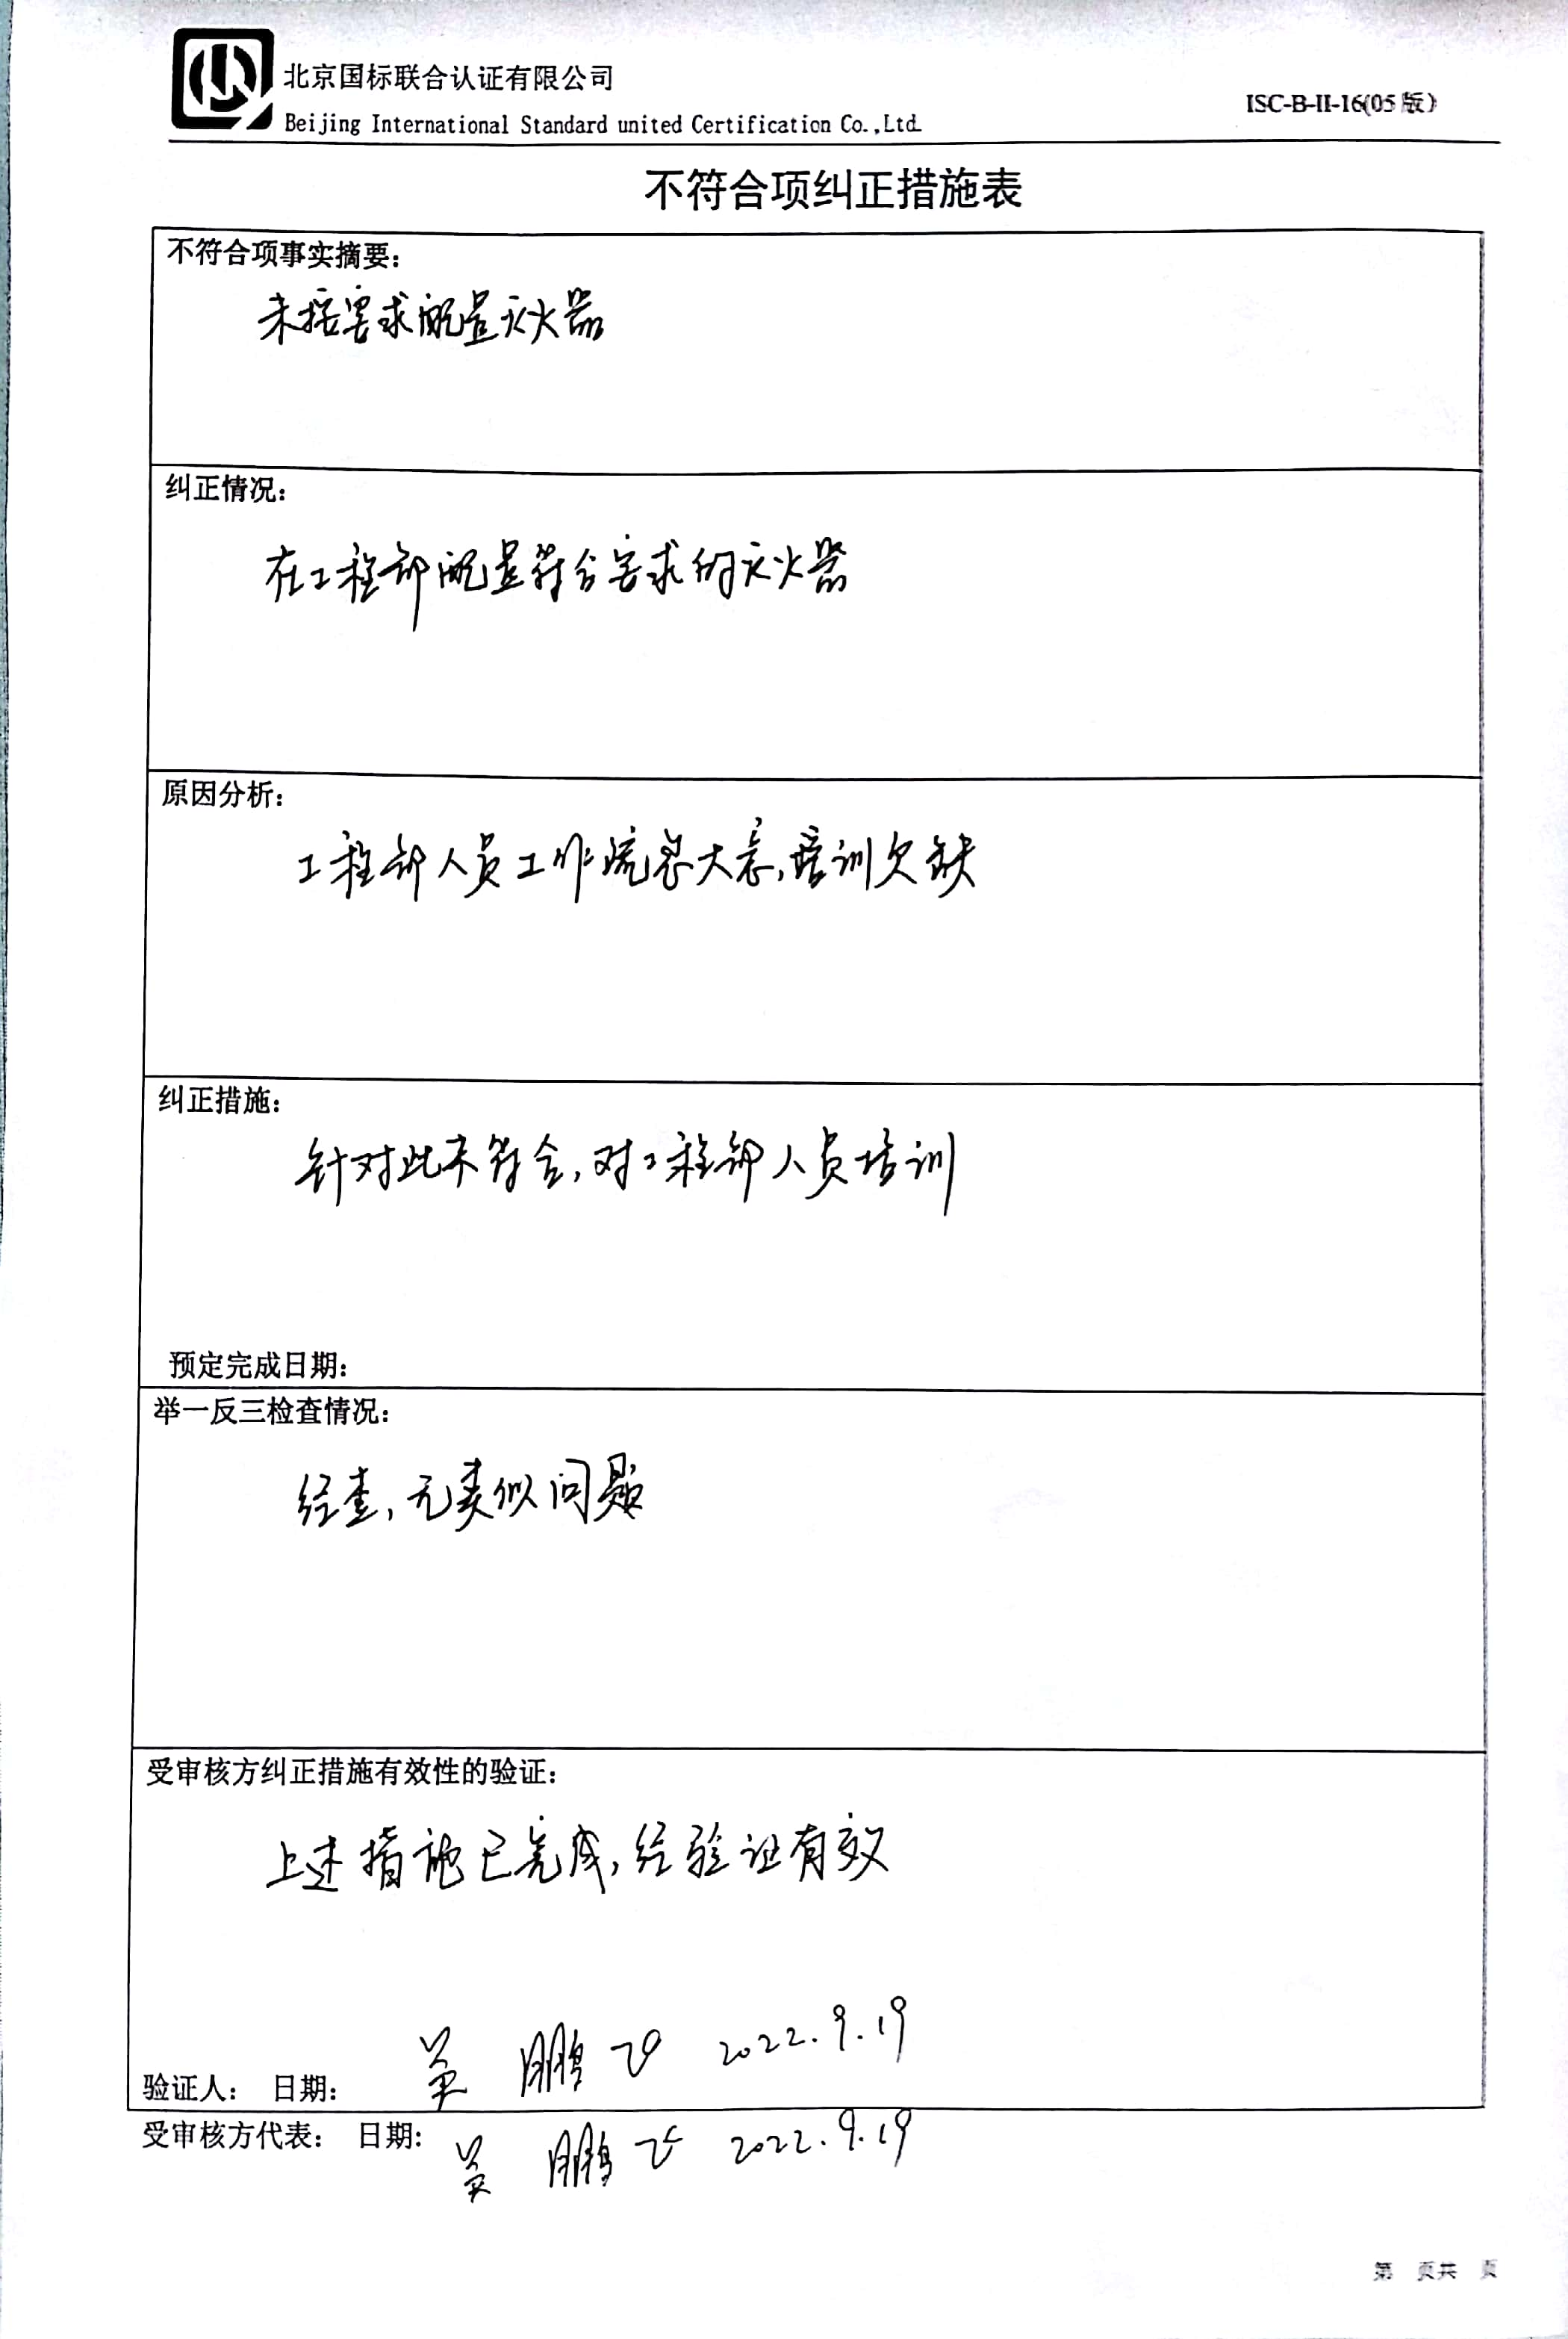 北京国标联合认证有限公司
Beijing International Standard united Certification Co.,Ltd.
ISC-B-II-16(05版)
不符合项纠正措施表
不符合项事实摘要:
未按要求配置灭火器
纠正情况:
在工程部配置符合要求的灭火器
原因分析:
工程部人员工作疏忽大意,培训欠缺
纠正措施:
针对此不符合,对工程部人员培训
预定完成日期:
举一反三检查情况:
经查,无类似问题
受审核方纠正措施有效性的验证:
上述措施已完成,经验证有效
验证人: 日期: 吴鹏飞 2022.9.19
受审核方代表: 日期: 吴鹏飞 2022.9.19
第 页共 页